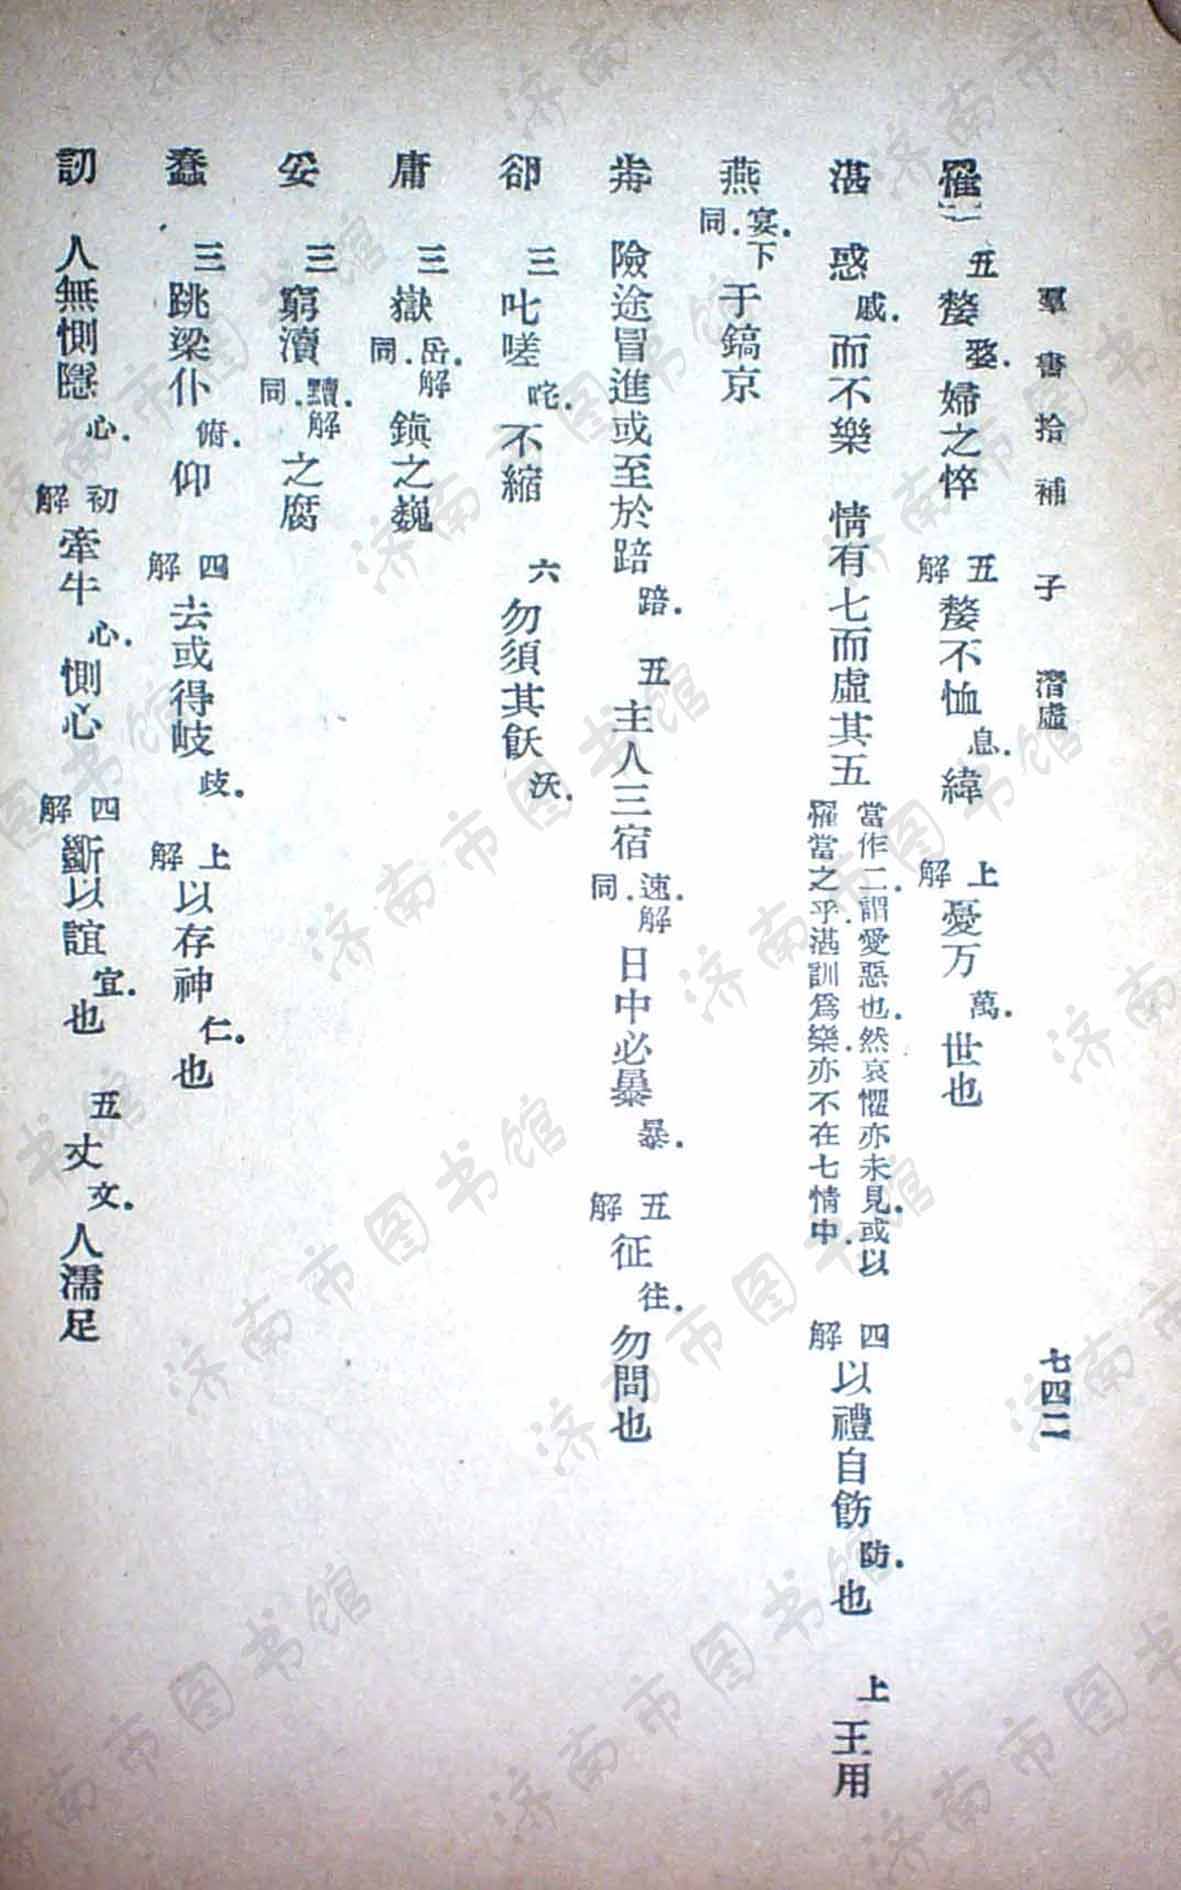 羣書拾補 子 潛虛 七四二
罹 五 嫠婺.婦之悴 五解 嫠不恤息.緯 上解 憂万萬.世也
湛 惑慼.而不樂 情有七而虛其五當作二.謂愛惡也.然哀懼亦未見.或以罹當之乎.湛訓爲樂.亦不在七情中. 四解 以禮自飭防.也 上 王用
燕宴.下同. 于鎬京
險途冒進或至於踣踣. 五 主人三宿速.解同. 日中必暴暴. 五解 征往.勿問也
郤 三 叱嗟咤.不縮 六 勿須其飫沃.
庸 三 嶽岳.解同.鎮之巍
妥 三 窮瀆黷.解同.之腐
蠢 三 跳梁仆俯.仰 四解 去或得岐歧. 上解 以存神仁.也
訒 人無惻隱心. 初解 牽牛心.惻心 四解 斷以誼宜.也 五 丈文.人濡足